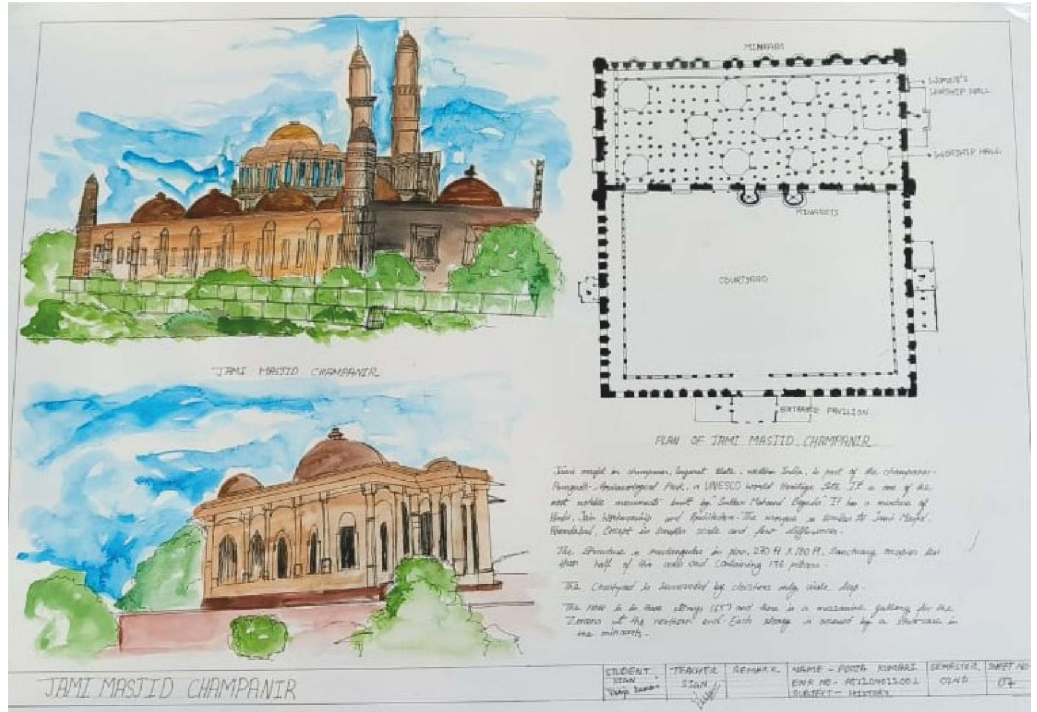 JAMI MASJID CHAMPANIR
MIHRABS
WOMEN'S
WORSHIP HALL
WORSHIP HALL
MINARETS
COURTYARD
ENTRANCE PAVILION
PLAN OF JAMI MASJID CHAMPANIR
Jami masjid in champaner, Gujarat state, western India, is part of the champaner-
Pavagadh-Archaeological Park, a UNESCO world Heritage Site. It is one of the
most notable monuments built by Sultan Mahmud Begada. It has a mixture of
Hindu, Jain Workmanship and Architecture. The mosque is similar to Jami Masjid,
except in smaller scale and few differences.
The structure is rectangular in plan, 270 ft X 180 ft, Sanctuary occupies less
than half of the area and containing 176 pillars.
The Courtyard is surrounded by cloisters only aisle deep.
The nave is in three storeys (65') and there is a mezzanine gallery for the
Zenana at the northern end. Each storey is accessed by a staircase in
the minarets.
JAMI MASJID CHAMPANIR
STUDENT SIGN
TEACHER SIGN
REMARK
NAME - POOJA KUMARI
ENR NO-
SUBJECT - HISTORY
SEMESTER
02ND
SHEET NO
07